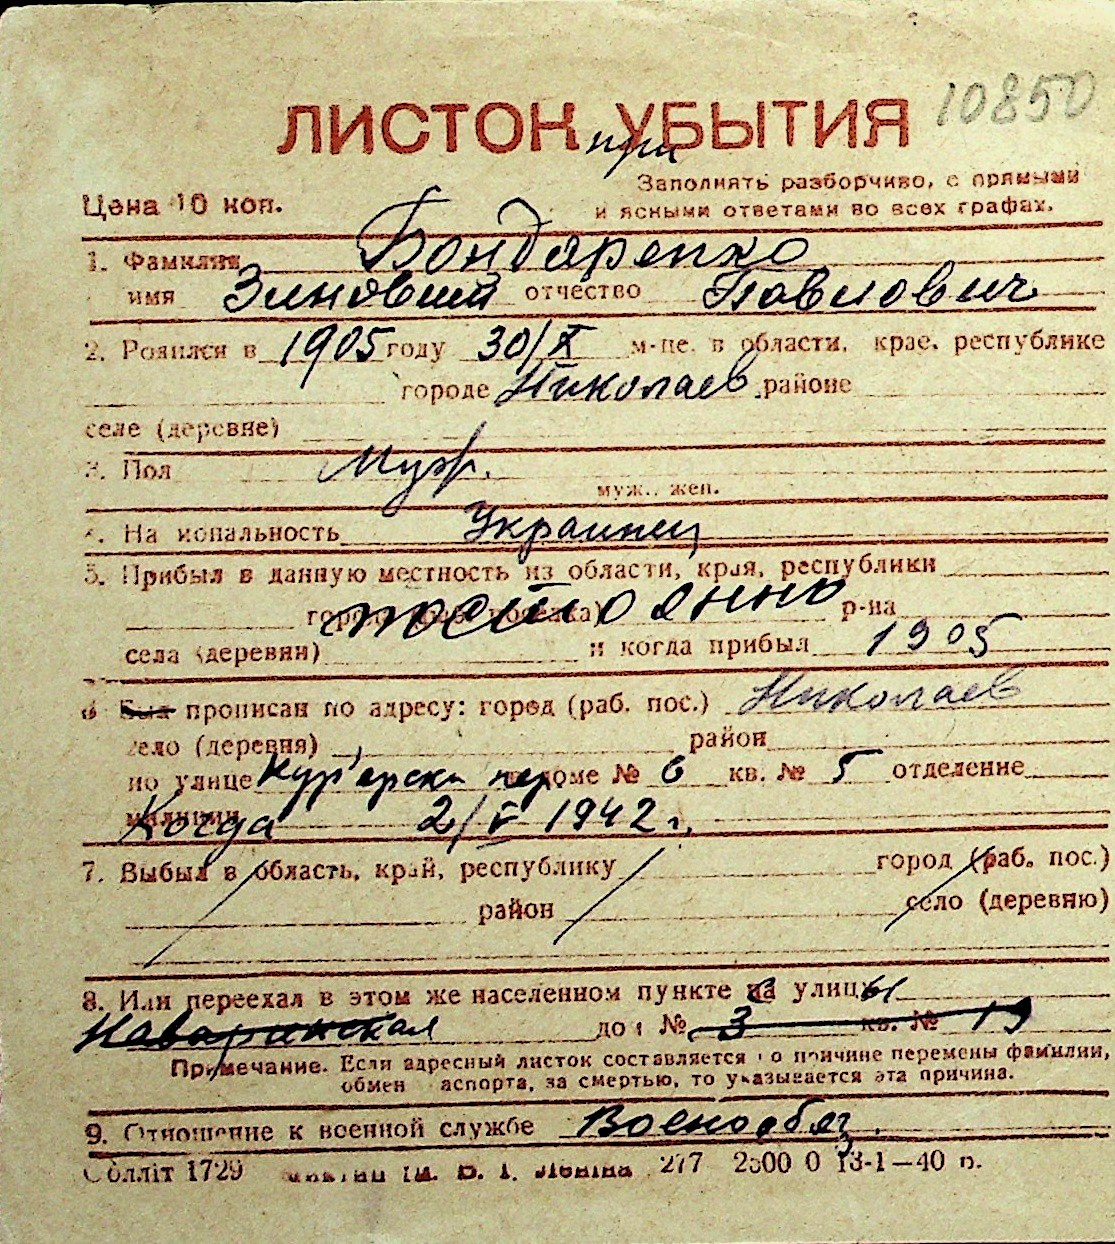 10850
ЛИСТОК УБЫТИЯ
при
Заполнять разборчиво, с прямыми
Цена 10 коп. и ясными ответами во всех графах.
1. Фамилия Бондаренко
имя Зиновий отчество Павлович
2. Родился в 1905 году 30/X м-це. в области, крае, республике
городе Николаев районе
селе (деревне)
3. Пол Муж.
муж., жен.
4. Национальность Украинец
5. Прибыл в данную местность из области, края, республики
города (раб. поселка) постоянно р-на
села (деревни) и когда прибыл 1905
6 Был прописан по адресу: город (раб. пос.) Николаев
село (деревня) район
по улице Кур'ерски пер. доме № 6 кв. № 5 отделение
милиции Когда 2/V 1942 г.
7. Выбыл в область, край, республику город (раб. пос.)
район село (деревню)
8. Или переехал в этом же населенном пункте с улицы
Наваринская дом № 3 кв. № 19
Примечание. Если адресный листок составляется по причине перемены фамилии,
обмен паспорта, за смертью, то указывается эта причина.
9. Отношение к военной службе Воснообяз.
Облліт 1729 ім. В. І. Леніна 277 2500 0 13-1—40 п.